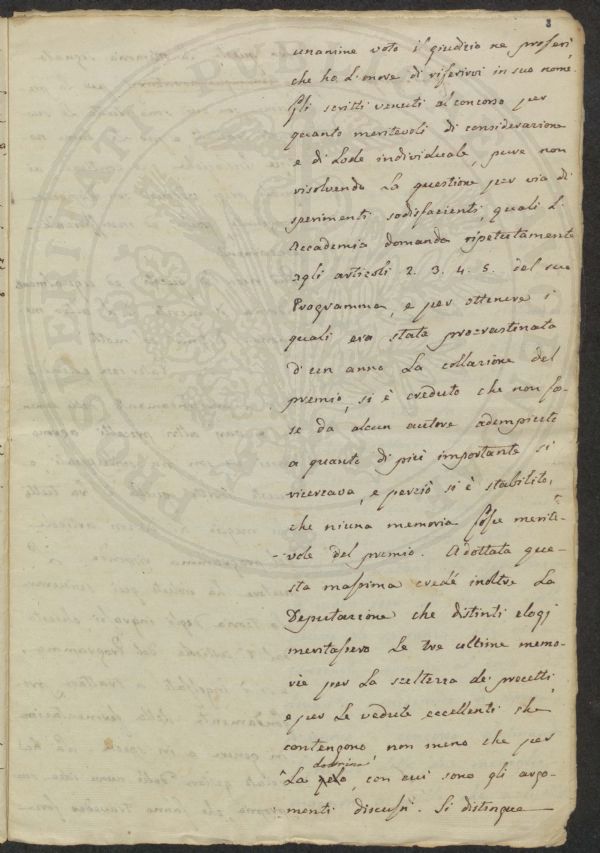 3
unanime voto il giudizio ne proferì,
che ho l'onore di riferirvi in suo nome.
Gli scritti venuti al concorso per
quanto meritevoli di considerazione
e di Lode individuale, pure non
risolvendo la questione per via di
sperimenti sodisfacienti, quali l'
Accademia domanda ripetutamente
agli articoli 2. 3. 4. 5. del suo
Programma, e per ottenere i
quali era stata procrastinata
d'un anno la collazione del
premio, si è creduto che non fos-
se da alcun autore adempiuto
a quanto di più importante si
ricercava, e perciò si è stabilito,
che niuna memoria fosse merite-
vole del premio. Adottata que-
sta massima credé inoltre la
Deputazione che distinti elogj
meritassero le tre ultime memo-
rie per la sceltezza de' precetti,
e per le vedute eccellenti che
contengono non meno che per
dottrina
La con cui sono gli argo-
menti discussi. Si distingue